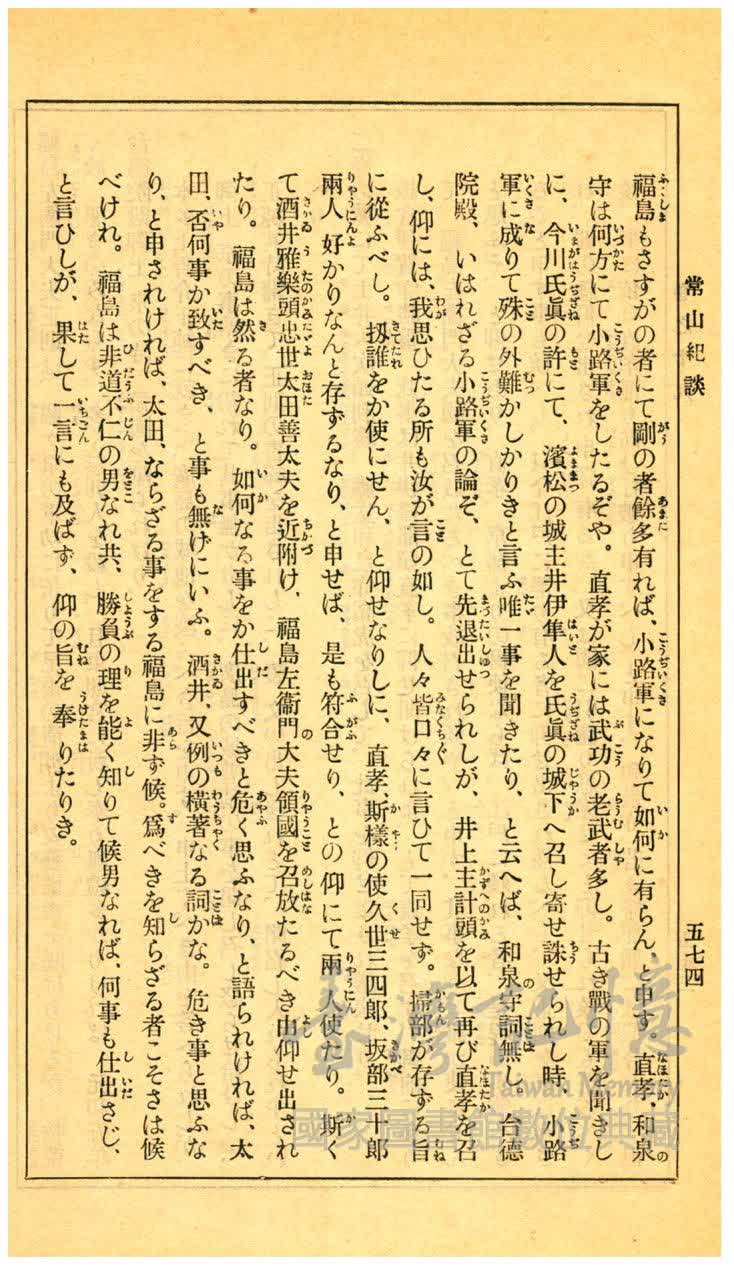 常山紀談
五七四
福島もさすがの者にて剛の者餘多有れば、小路軍になりて如何に有らん、と申す。直孝、和泉
守は何方にて小路軍をしたるぞや。直孝が家には武功の老武者多し。古き戰の軍を聞きし
に、今川氏眞の許にて、濱松の城主井伊隼人を氏眞の城下へ召し寄せ誅せられし時、小路
軍に成りて殊の外難かしかりきと言ふ唯一事を聞きたり、と云へば、和泉守詞無し。台德
院殿、いはれざる小路軍の論ぞ、とて先退出せられしが、井上主計頭を以て再び直孝を召
し、仰には、我思ひたる所も汝が言の如し。人々皆口々に言ひて一同せず。掃部が存ずる旨
に從ふべし。扨誰をか使にせん、と仰せなりしに、直孝、斯樣の使久世三四郎、坂部三十郎
兩人好かりなんと存ずるなり、と申せば、是も符合せり、との仰にて兩人使たり。斯く
て酒井雅樂頭忠世太田善太夫を近附け、福島左衞門大夫領國を召放たるべき由仰せ出され
たり。福島は然る者なり。如何なる事をか仕出すべきと危く思ふなり、と語られければ、太
田、否何事か致すべき、と事も無げにいふ。酒井、又例の橫著なる詞かな。危き事と思ふな
り、と申されければ、太田、ならざる事をする福島に非ず候。爲べきを知らざる者こそさは候
べけれ。福島は非道不仁の男なれ共、勝負の理を能く知りて候男なれば、何事も仕出さじ、
と言ひしが、果して一言にも及ばず、仰の旨を奉りたりき。
臺灣記憶
Taiwan Memory
國家圖書館數位典藏